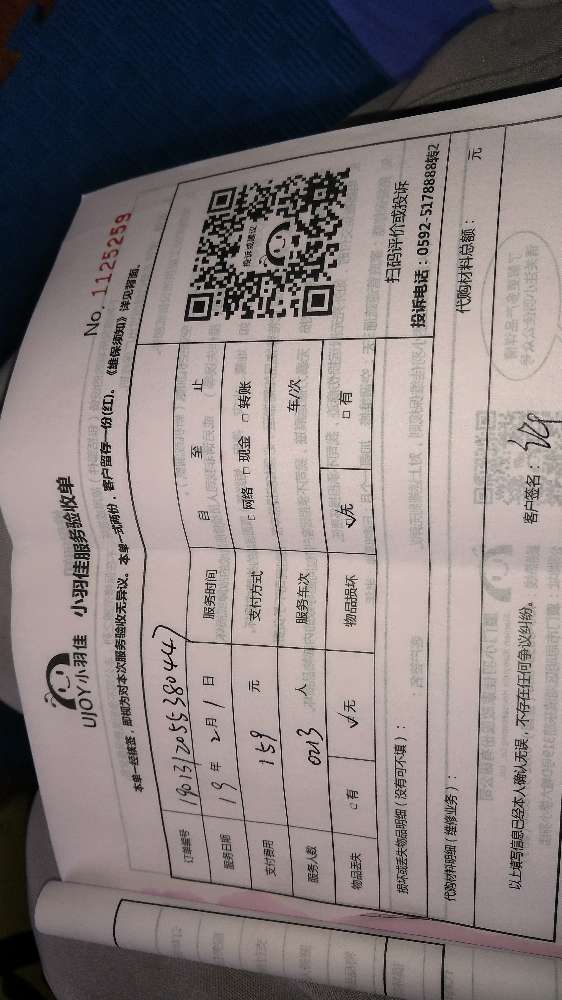 UJOY小羽佳 小羽佳服务验收单
No. 1125259
本单一经续签，即视为对本次服务验收无异议。本单一式两份，客户留存一份(红)。《维保须知》详见背面。
订单编号 1901312055380447
服务日期 19 年 2 月 1 日 服务时间 自 至 止
支付费用 159 元 支付方式 □网络 □现金 □转账
服务人数 0213 人 服务车次 车/次
物品丢失 □有 ☑无 物品损坏 ☑无 □有
投诉或建议
扫码评价或投诉
投诉电话：0592-5178888转2
损坏或丢失物品明细（没有可不填）：
代购材料明细（维修业务）： 代购材料总额： 元
以上填写信息已经本人确认无误，不存在任何争议纠纷。 客户签名：